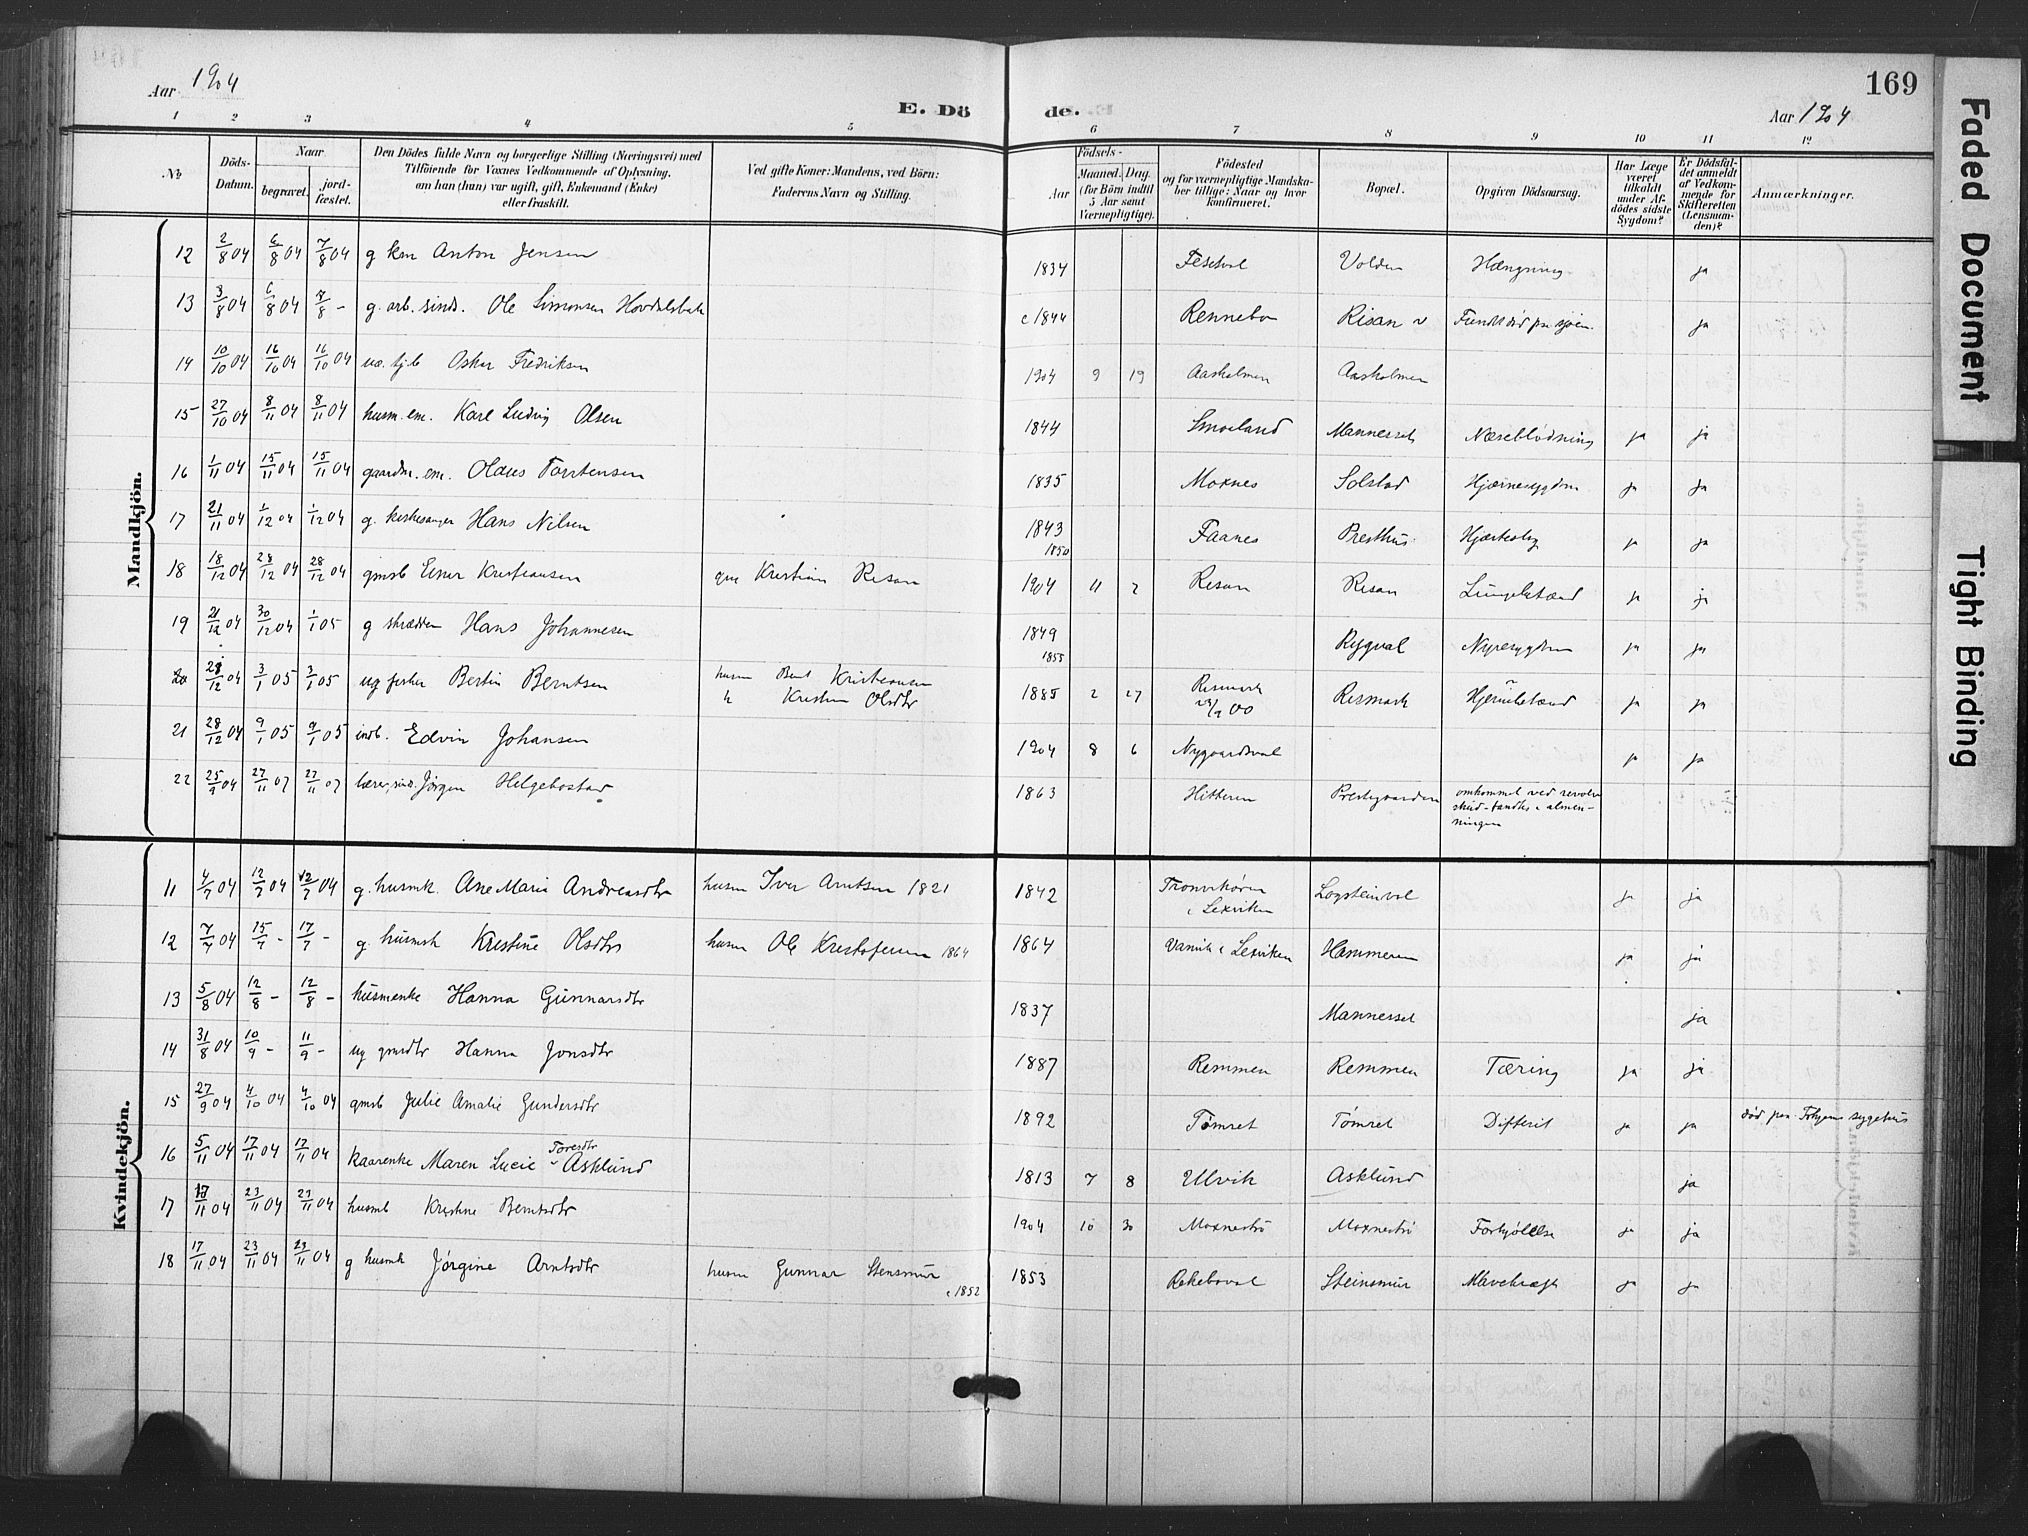 Aar 1904
E. Döde.
169
Aar 1904
Faded Document
Tight Binding
1 2 3 4 5 6 7 8 9 10 11 12
No
Döds-Datum.
Naar
begravet.
jordfæstet.
Den Dödes fulde Navn og borgerlige Stilling (Næringsvei) med
Tilföiende for Voxnes Vedkommende af Oplysning,
om han (hun) var ugift, gift, Enkemand (Enke)
eller fraskilt.
Ved gifte Koner: Mandens, ved Börn:
Faderens Navn og Stilling.
Födsels-
Aar
Maaned. Dag.
(for Börn indtil
5 Aar samt
Værnepligtige).
Födested
og for værnepligtige Mandskaber
tillige: Naar og hvor
konfirmeret.
Bopæl.
Opgiven Dödsaarsag.
Har Læge
været
tilkaldt
under Afdödes
sidste
Sygdom?
Er Dödsfaldet
anmeldt
af Vedkommende
for
Skifteretten
(Lensmanden)?
Anmærkninger.
Mandkjön.
12 2/8 04 6/8 04 7/8 04 g km Anton Jensen 1834 Volden Hængning ja
13 3/8 04 6/8 04 7/8 - g. arb. sind. Ole Simonsen Hovdalsbak c 1844 Rennebo Risan v Fundet död paa sjöen. ja
14 10/10 04 16/10 04 16/10 04 Oskar Fredriksen 1904 9 19 Aasholmen Aasholmen
15 27/10 04 8/11 04 8/11 04 husm. em. Karl Ludvig Olsen 1844 Smoeland Mannesset Næseblödning ja ja
16 1/11 04 15/11 04 15/11 04 gaardm. em. Olaus Torstensen 1835 Moxnes Solstad Hjærnesygdm ja ja
17 21/11 04 1/12 04 1/12 04 g. kirkesanger Hans Nilsen 1843 1850 Faanes Presthus Hjærteslag ja ja
18 18/12 04 28/12 04 28/12 04 gmsb Einar Kristiansen gm Kristian Risan 1904 11 2 Risan Risan Lungebetænd ja ja
19 21/12 04 30/12 04 1/1 05 g skrædder Hans Johannesen 1849 1855 Rygval Nyresygdm ja ja
20 28/12 04 3/1 05 3/1 05 ug fisker Bertin Berntsen husm Bernt Kristiansen
h Kristine Olsdtr 1885 2 27 Rismark Rismark Hjernebetænd ja ja
21 28/12 04 9/1 05 9/1 05 indb. Edvin Johansen 1904 8 6 Nygaardsval ja ja
22 25/9 04 27/11 07 27/11 07 lærer, sind. Jörgen Helgebostad 1863 Hitteren Prestegaarden omkommet ved revolver
skud - fandtes i almenningen
Kvindekjön.
11 4/7 04 12/7 04 12/7 04 g. husmk. Ane Marie Andreasdtr husm Iver Arntsen 1821 1842 Tronvikören
i Lexviken Logsteinval ja ja
12 7/7 04 15/7 - 17/7 - g. husmk Kristine Olsdtr husm Ole Kristofersen 1864 1864 Vanvik i Lexviken Hammeren ja ja
13 5/8 04 12/8 - 12/8 - husmenke Hanna Gunnarsdtr 1837 Mannesset ja
14 31/8 04 10/9 - 11/9 - ug gmsdtr Hanna Jonsdtr 1887 Remmen Remmen Tæring ja ja
15 27/9 04 4/10 04 4/10 04 gmsb Julie Amalie Gundersdtr 1892 Tömret Tömret Difterit ja ja död paa sygehus
16 5/11 04 17/11 04 17/11 04 kaarenke Maren Lucie Toresdtr Asklund 1813 7 8 Ulvik Asklund ja
17 17/11 04 23/11 04 23/11 04 husmb Kristine Berntsdtr 1904 10 30 Moxneströ Moxneströ Forkjölelse ja ja
18 17/11 04 23/11 04 23/11 04 g husmk Jörgine Arntsdtr husm Gunnar Stensmür c 1852 1853 Rekeboval Steinsmür Mavekræft ja ja